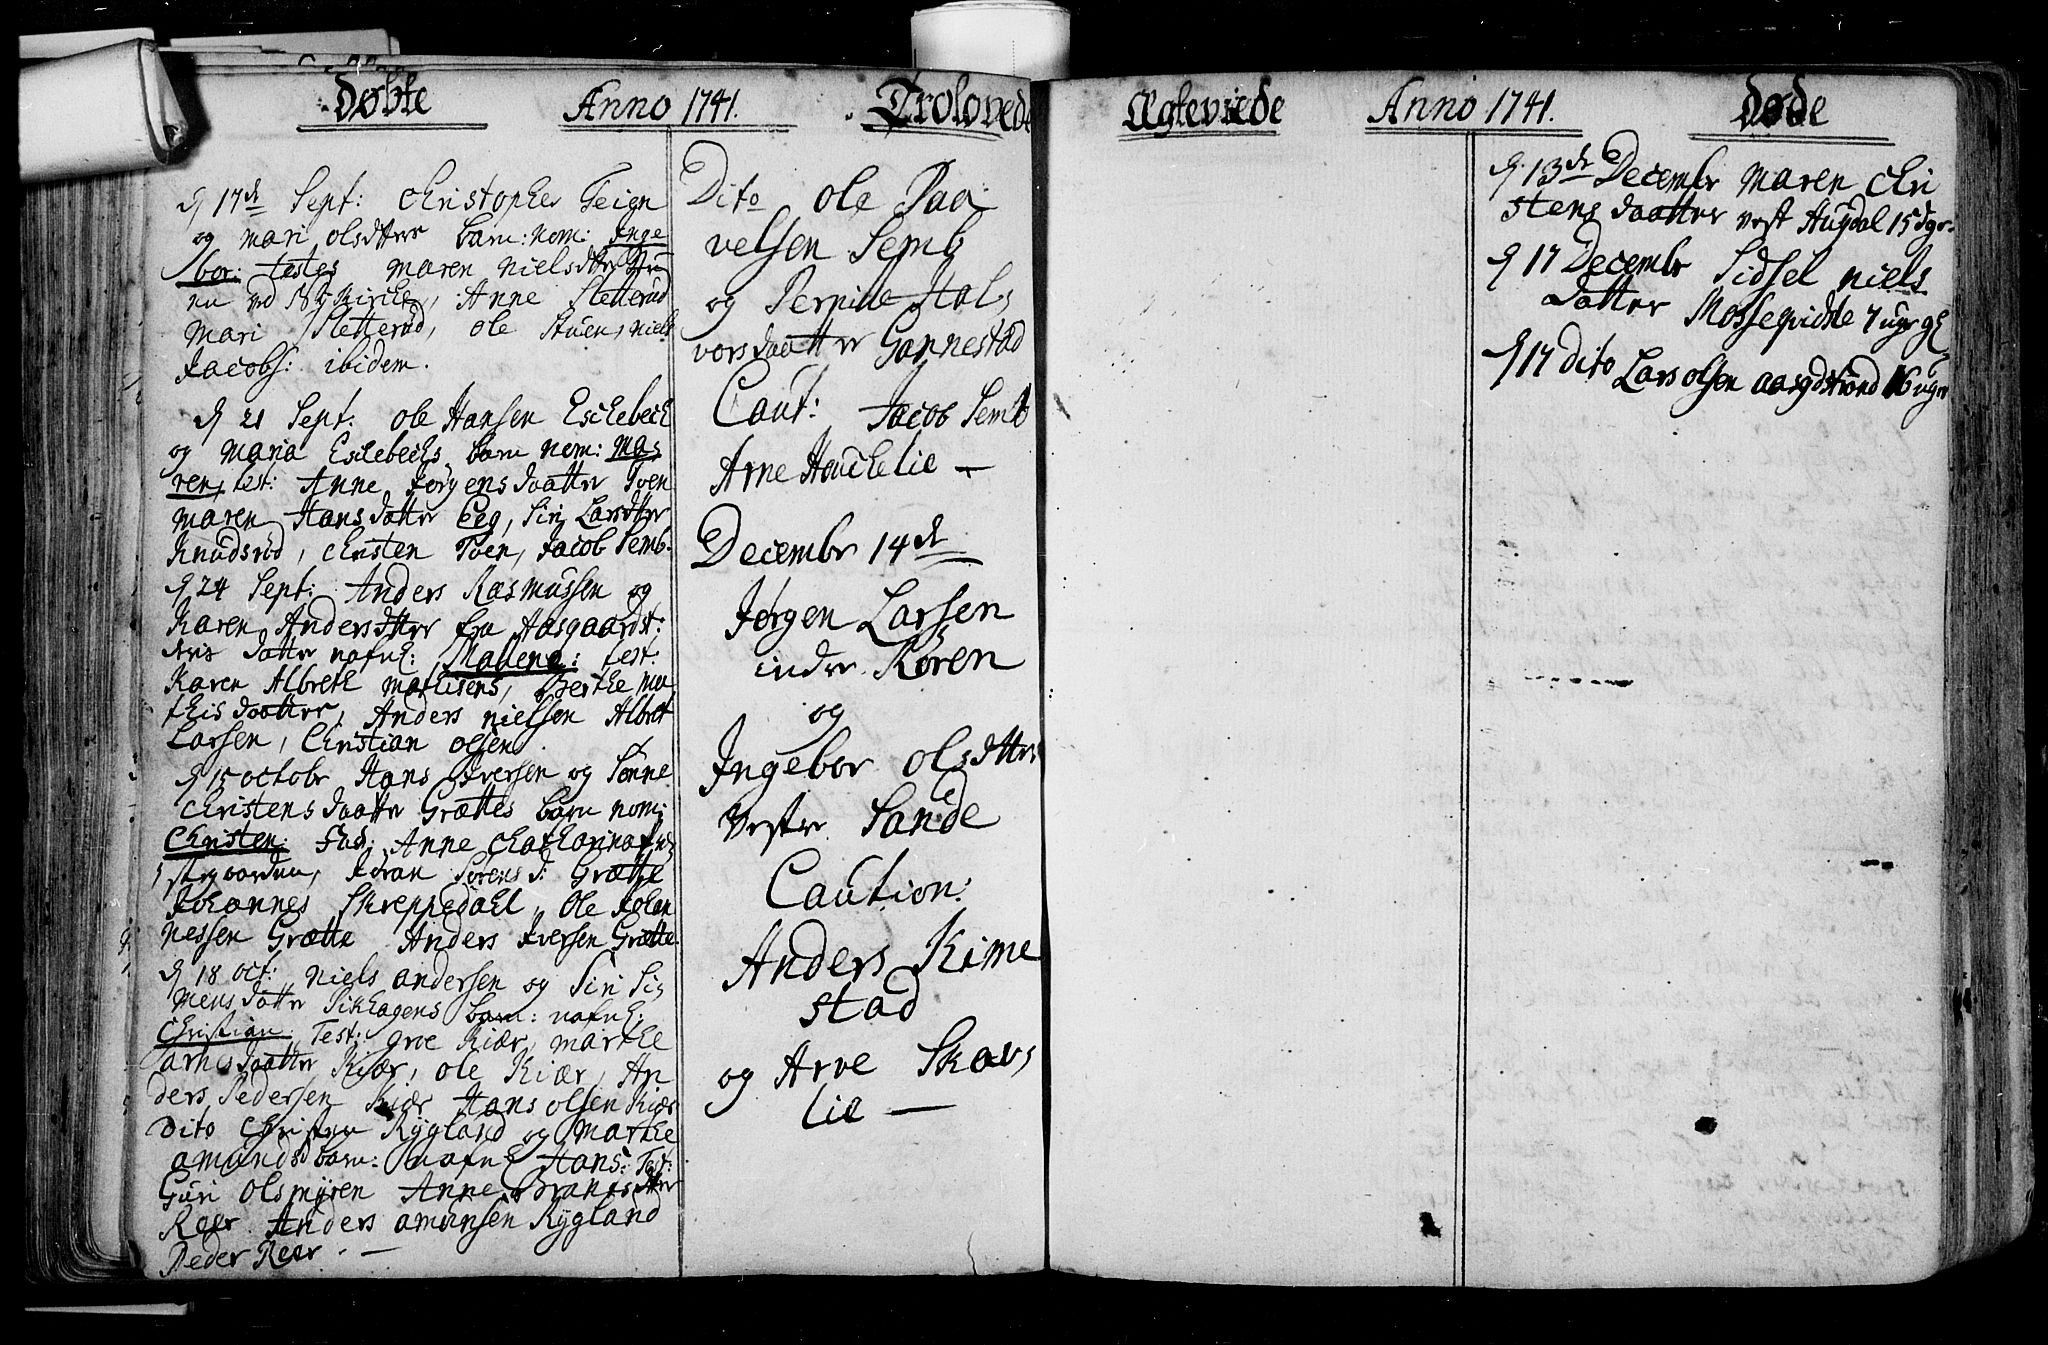 Døbte
Anno 1741.
Trolovede
d 17de Sept: Christopher Teien
og Mari Olsdtters barn: nom: Inge
bor: testes Maren Nielsdtter
Kirche, Anne Sletterud
Mari Sletterud, Ole Stuen, Niels
Jacobs: ibidem.
d 21 Sept: Ole Hansen Eschebech
og Maria Eschebechs barn nom: Ma-
ren, test: Anne Jørgensdaatter Tven
Maren Hansdatter Eeg, Siri Larsdtter
Knudsrød, Christen Tven, Jacob Semb.
d 24 Sept: Anders Rasmussen og
Karen Andersdtter fra Aasgaardst:
deris datter nafnl: Mallene: test:
Karen Albreth Mathisens, Berthe Ma
thisdaatter, Anders Nielsen Albret
Larsen, Christian Olsen.
d 15 octobr Hans Iversen og Sønne
Christensdaatter Grættes barn nom:
Christen: Fad: Anne Chatharina
Præstgaarden, Joran Sørens d: Grætte
Johannes Skreppedahl, Ole Johan
nessen Grætte Anders Iversen Grætte.
d 18 oct: Niels Andersen og Siri Si-
mensdatter Sikhagens barn: nafnl:
Christian: Test: Groe Kiær, Marthe
Arnesdaatter Kiær, Ole Kiær, An
ders Pedersen Kiær Hans Olsen Kiær
Dito Christen Rygland og Marthe
Amundsd barn: nafnl Hans: Test:
Guri Olsmyren Anne Brandsdtter
Reer Anders Amunsen Rygland
Peder Reer. —
Dito Ole Paa
velsen Semb
og Pernille Hal-
vorsdaatter Gannestad
Caut: Jacob Semb
Arne Houchelie —
Decembr 14de
Jørgen Larsen
indre Røren
og
Ingebor Olsdtter
Vestre Sande
Caution:
Anders Kime
stad
og Arve Skavs
lie —
Ægteviede
Anno 1741.
døde
d. 13de Decembr Maren Chri
stensdaatter vest Hugdal 15 dgr.
d 17 Decembr Sidsel Niels
datter Mosseqvidtle 7 ugr gl
d 17 Dito Lars Olsen Aasgdstrand 16 ugr